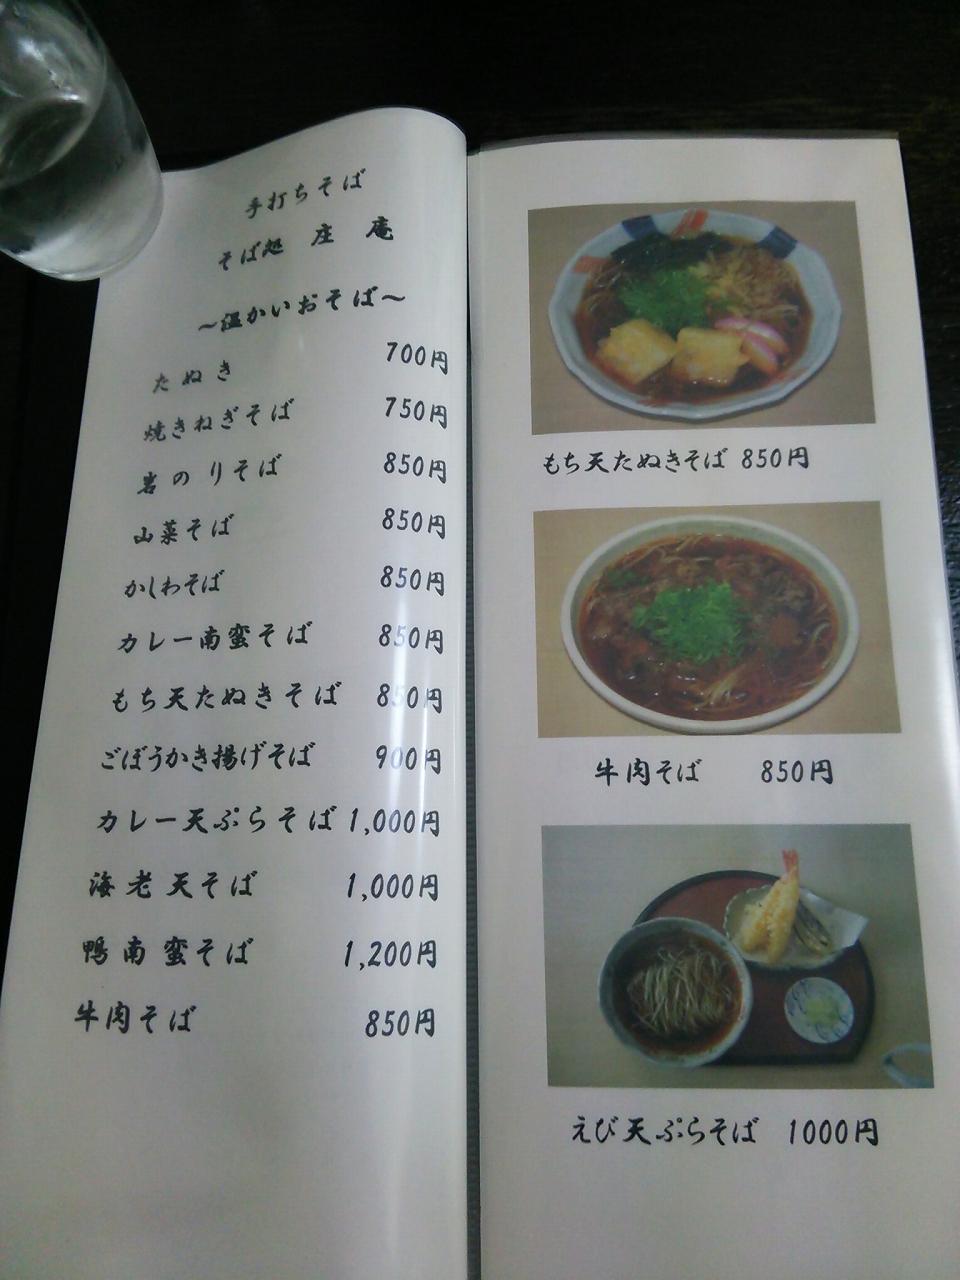 手打ちそば
そば処 座 庵
～温かいおそば～
たぬき 700円
焼きねぎそば 750円
岩のりそば 850円
山菜そば 850円
かしわそば 850円
カレー南蛮そば 850円
もち天たぬきそば 850円
ごぼうかき揚げそば 900円
カレー天ぷらそば 1,000円
海老天そば 1,000円
鴨南蛮そば 1,200円
牛肉そば 850円
もち天たぬきそば 850円
牛肉そば 850円
えび天ぷらそば 1000円